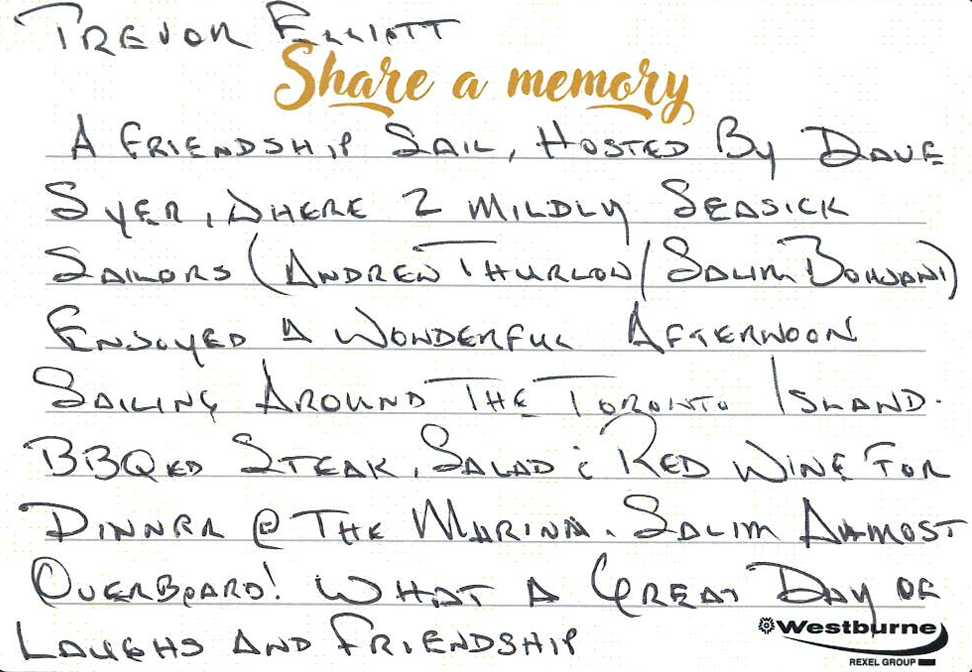 TREVOR ELLIOTT
Share a memory
A FRIENDSHIP SAIL, HOSTED BY DAVE
SYER, WHERE 2 MILDLY SEASICK
SAILORS (ANDREW THURLOW/SALIM BOHJANI)
ENJOYED A WONDERFUL AFTERNOON
SAILING AROUND THE TORONTO ISLAND.
BBQED STEAK, SALAD & RED WINE FOR
DINNER @ THE MARINA. SALIM ALMOST
OVERBOARD! WHAT A GREAT DAY OF
LAUGHS AND FRIENDSHIP
Westburne
REXEL GROUP